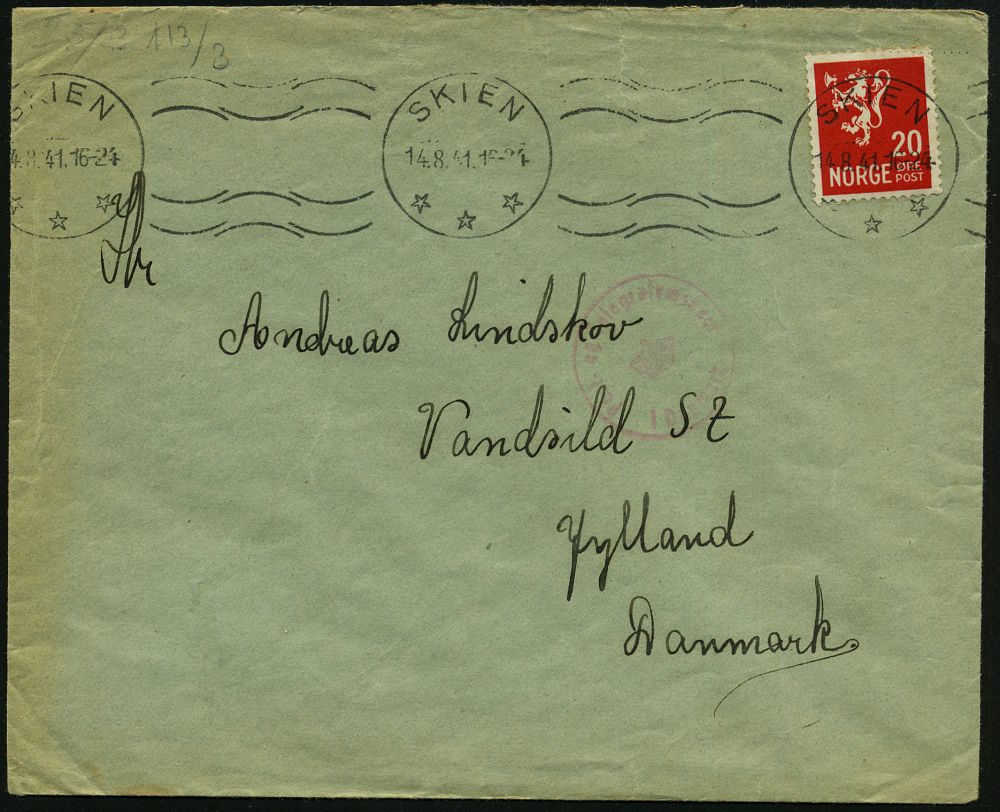 113/3
SKIEN
14.8.41.16-24
SKIEN
14.8.41.16-24
SKIEN
14.8.41.16-24
20
NORGE ØRE
POST
Hr
Andreas Lindskov
Vandsild St
Jylland
Danmark.